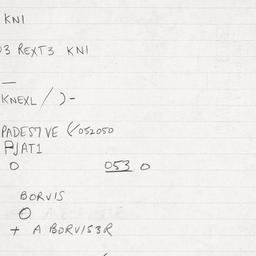 KNI
03 REXT3 KNI
KNEXL / ) -
PADES7VE (/052050
PJAT1
O 053 O
BORVIS
O
+ A BORVIS3R